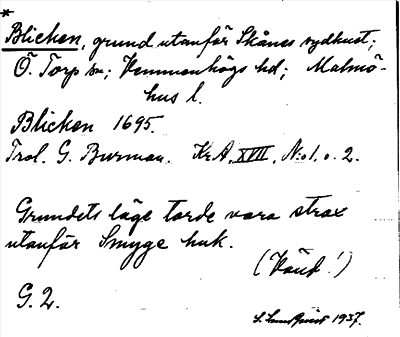 *
Blicken, grund utanför Skånes sydkust;
Ö. Torp sn; Vemmenhögs hd; Malmö-
hus l.
Blicken 1695.
Trol. G. Burman. Kr.A, XVII, N:o 1, o. 2.
Grundets läge torde vara strax
utanför Smyge huk.
(Vänd!)
G. 2.
1937.